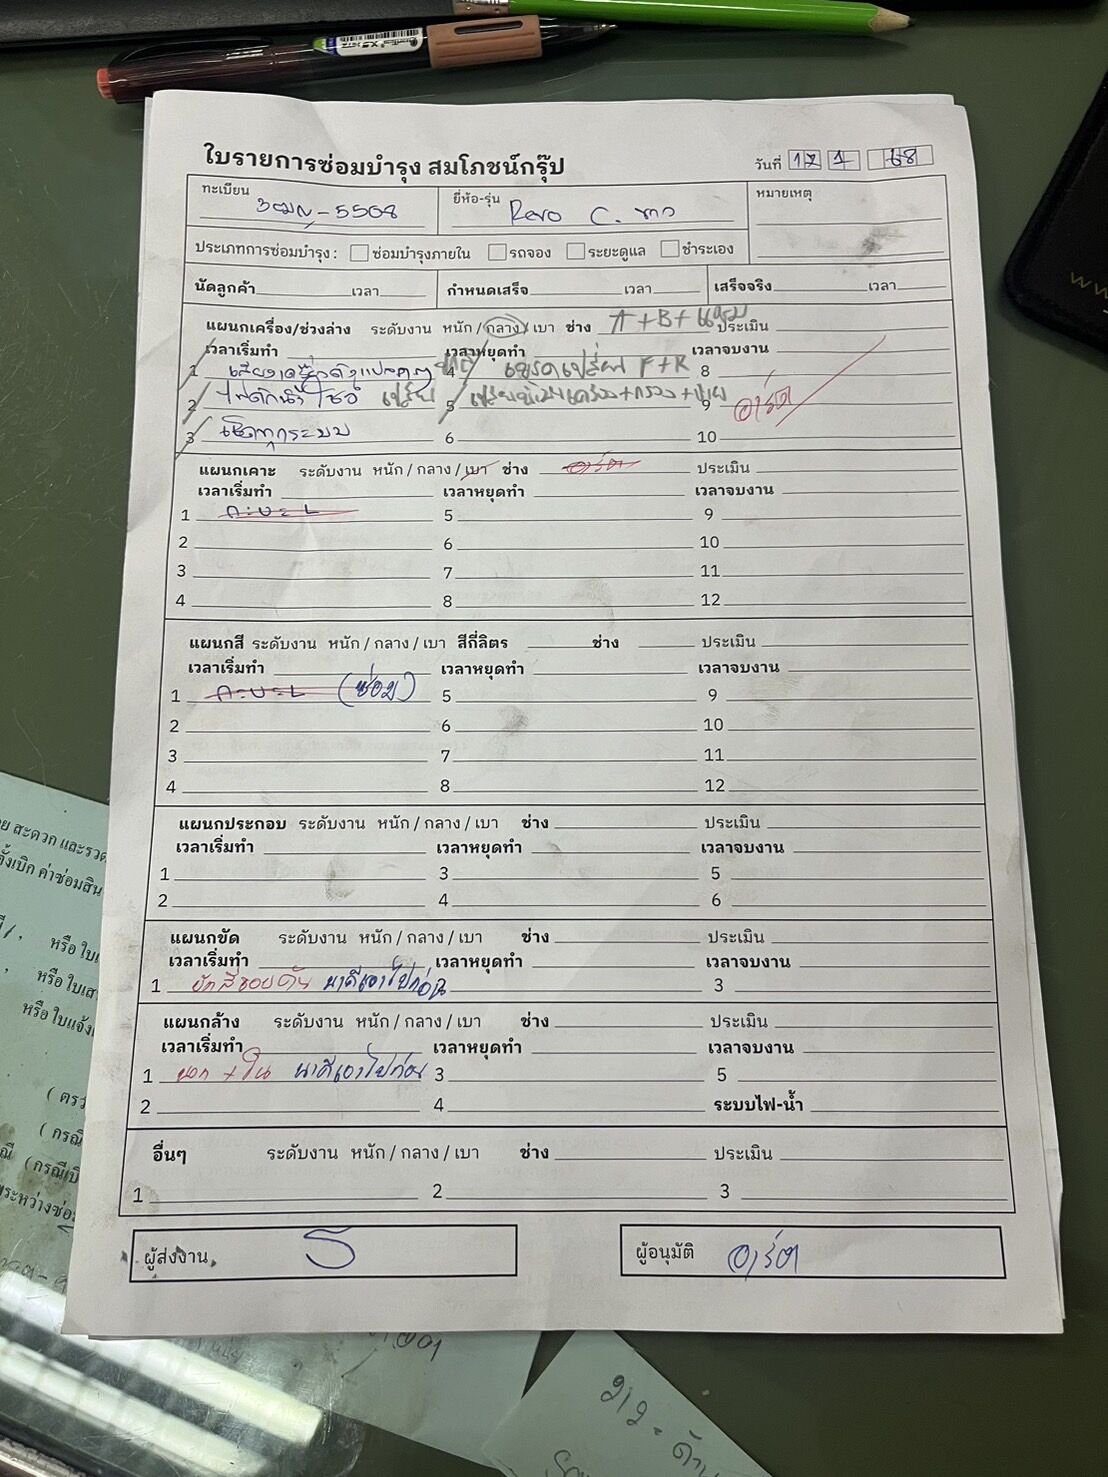 ใบรายการซ่อมบำรุง สมโภชน์กรุ๊ป
วันที่ 17 1 68
ทะเบียน 3ฒญ-5508 ยี่ห้อ-รุ่น Revo C. หมายเหตุ
ประเภทการซ่อมบำรุง : ซ่อมบำรุงภายใน รถจอง ระยะดูแล ชำระเอง
นัดลูกค้า เวลา กำหนดเสร็จ เวลา เสร็จจริง เวลา
แผนกเครื่อง/ช่วงล่าง ระดับงาน หนัก / กลาง / เบา ช่าง A+B+ ประเมิน
เวลาเริ่มทำ เวลาหยุดทำ เวลาจบงาน
1 4 F+R 8
2 ไฟ โชว์ เปลี่ยน 5 9 อาร์ต
3 เช็คทุกระบบ 6 10
แผนกเคาะ ระดับงาน หนัก / กลาง / เบา ช่าง อาร์ต ประเมิน
เวลาเริ่มทำ เวลาหยุดทำ เวลาจบงาน
1 กะบะ L 5 9
2 6 10
3 7 11
4 8 12
แผนกสี ระดับงาน หนัก / กลาง / เบา สีกี่ลิตร ช่าง ประเมิน
เวลาเริ่มทำ เวลาหยุดทำ เวลาจบงาน
1 กะบะ L (ซ่อม) 5 9
2 6 10
3 7 11
4 8 12
แผนกประกอบ ระดับงาน หนัก / กลาง / เบา ช่าง ประเมิน
เวลาเริ่มทำ เวลาหยุดทำ เวลาจบงาน
1 3 5
2 4 6
แผนกขัด ระดับงาน หนัก / กลาง / เบา ช่าง ประเมิน
เวลาเริ่มทำ เวลาหยุดทำ เวลาจบงาน
1 ขัดสีรอบคัน 3
แผนกล้าง ระดับงาน หนัก / กลาง / เบา ช่าง ประเมิน
เวลาเริ่มทำ เวลาหยุดทำ เวลาจบงาน
1 นอก + ใน 3 5
2 4 ระบบไฟ-น้ำ
อื่นๆ ระดับงาน หนัก / กลาง / เบา ช่าง ประเมิน
1 2 3
ผู้ส่งงาน ผู้อนุมัติ อาร์ต
สะดวก และรวด
ตั้งเบิก ค่าซ่อมสิน
หรือ ใบ
หรือ ใบเส
หรือ ใบแจ้ง
( ตรว
( กรณี
(กรณีเบิ
ระหว่างซ่อ
2/2 - ด้าน